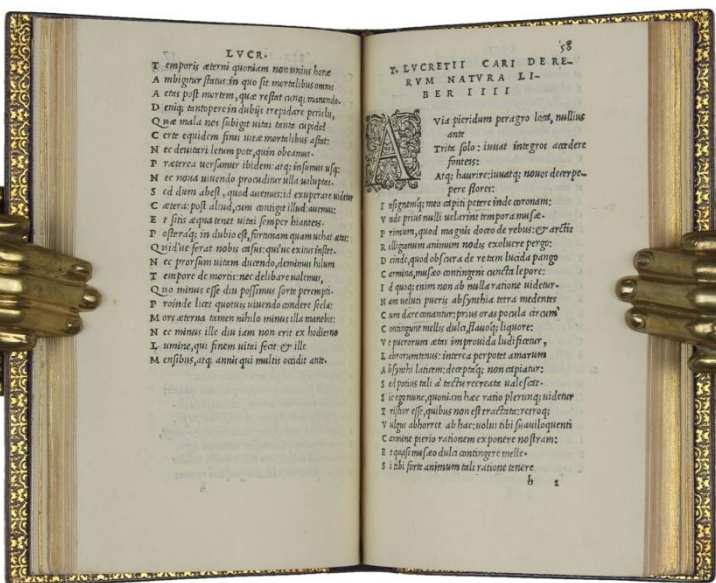 LVCR.
T emporis æterni quoniam non unius horæ
A mbigitur status: in quo sit mortalibus omnis
A etas post mortem, quæ restat cunq; manendo.
D eniq; tantopere in dubijs trepidare periclis,
Q uæ mala nos subigit uitai tanta cupido?
C erte equidem finis uitæ mortalibus astat:
N ec deuitari letum pote, quin obeamus.
P ræterea uersamur ibidem: atq; insumus usq;
N ec noua uiuendo procuditur ulla uoluptas.
S ed dum abest, quod auemus: id exuperare uidetur
C ætera: post aliud, cum contigit illud: auemus:
E t sitis æqua tenet uitai semper hianteis.
P ostraq; in dubio est, fortunam quam uehat ætas:
Q uid'ue ferat nobis casus: qui'ue exitus instet.
N ec prorsum uitam ducendo, demimus hilum
T empore de mortis: nec delibare ualemus,
Q uo minus esse diu possimus forte perempti.
P roinde licet quotuis uiuendo condere secla:
M ors æterna tamen nihilo minus illa manebit:
N ec minus ille diu iam non erit ex hodierno
L umine, qui finem uitai fecit & ille
M ensibus, atq; annis qui multis occidit ante.
58
T. LVCRETII CARI DE RE-
RVM NATVRA LI-
BER IIII
A Via pieridum peragro loca, nullius
ante
Trita solo: iuuat integros accedere
fonteis:
Atq; haurire: iuuatq; nouos decerpe-
pere flores:
I nsignemq; meo capiti petere inde coronam:
V nde prius nulli uelarint tempora musæ.
P rimum, quod magnis doceo de rebus: & arctis
R elligionum animum nodis exoluere pergo:
D einde, quod obscura de re tam lucida pango
C armina, musæo contingens cuncta lepore:
I d quoq; enim non ab nulla ratione uidetur.
N am ueluti pueris absynthia tetra medentes
C um dare conantur: prius oras pocula circum
C ontingunt mellis dulci, flauoq; liquore:
V t puerorum ætas improuida ludificetur,
L aborum tenus: interea perpotet amarum
A bsynthi laticem: deceptaq; non capiatur:
S ed potius tali a tactu recreata ualescat.
S ic ego nunc, quoniam hæc ratio plerunq; uidetur
T ristior esse, quibus non est tractata: retroq;
V ulgus abhorret ab hac: uolui tibi suauiloquenti
C armine pierio rationem exponere nostram:
E t quasi musæo dulci contingere melle.
S i tibi forte animum tali ratione tenere
h 2